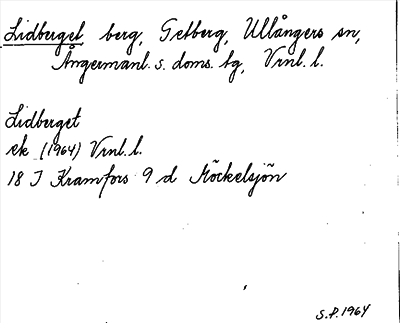 Lidberget berg, Getberg, Ullångers sn,
Ångermanl. s. doms. tg, Vrnl. l.
Lidberget
ek (1964) Vrnl. l.
18 J Kramfors 9 d Möckelsjön
S.P. 1964